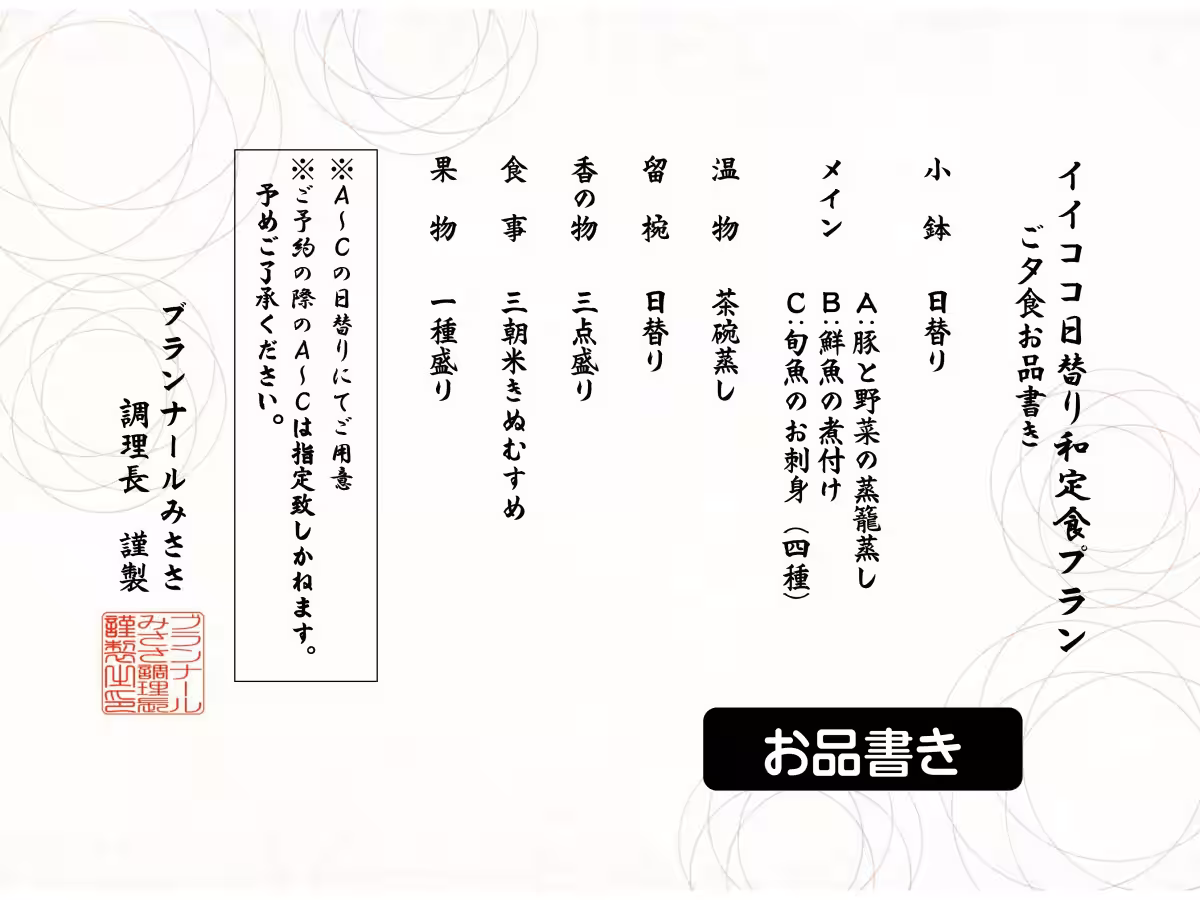 イイココ日替り和定食プラン
ご夕食お品書き
小鉢 日替り
メイン
A:豚と野菜の蒸籠蒸し
B:鮮魚の煮付け
C:旬魚のお刺身（四種）
温物 茶碗蒸し
留椀 日替り
香の物 三点盛り
食事 三朝米きぬむすめ
果物 一種盛り
※A～Cの日替りにてご用意
※ご予約の際のA～Cは指定致しかねます。
予めご了承ください。
ブランナールみささ
調理長 謹製
ブランナール
みささ調理長
謹製之印
お品書き